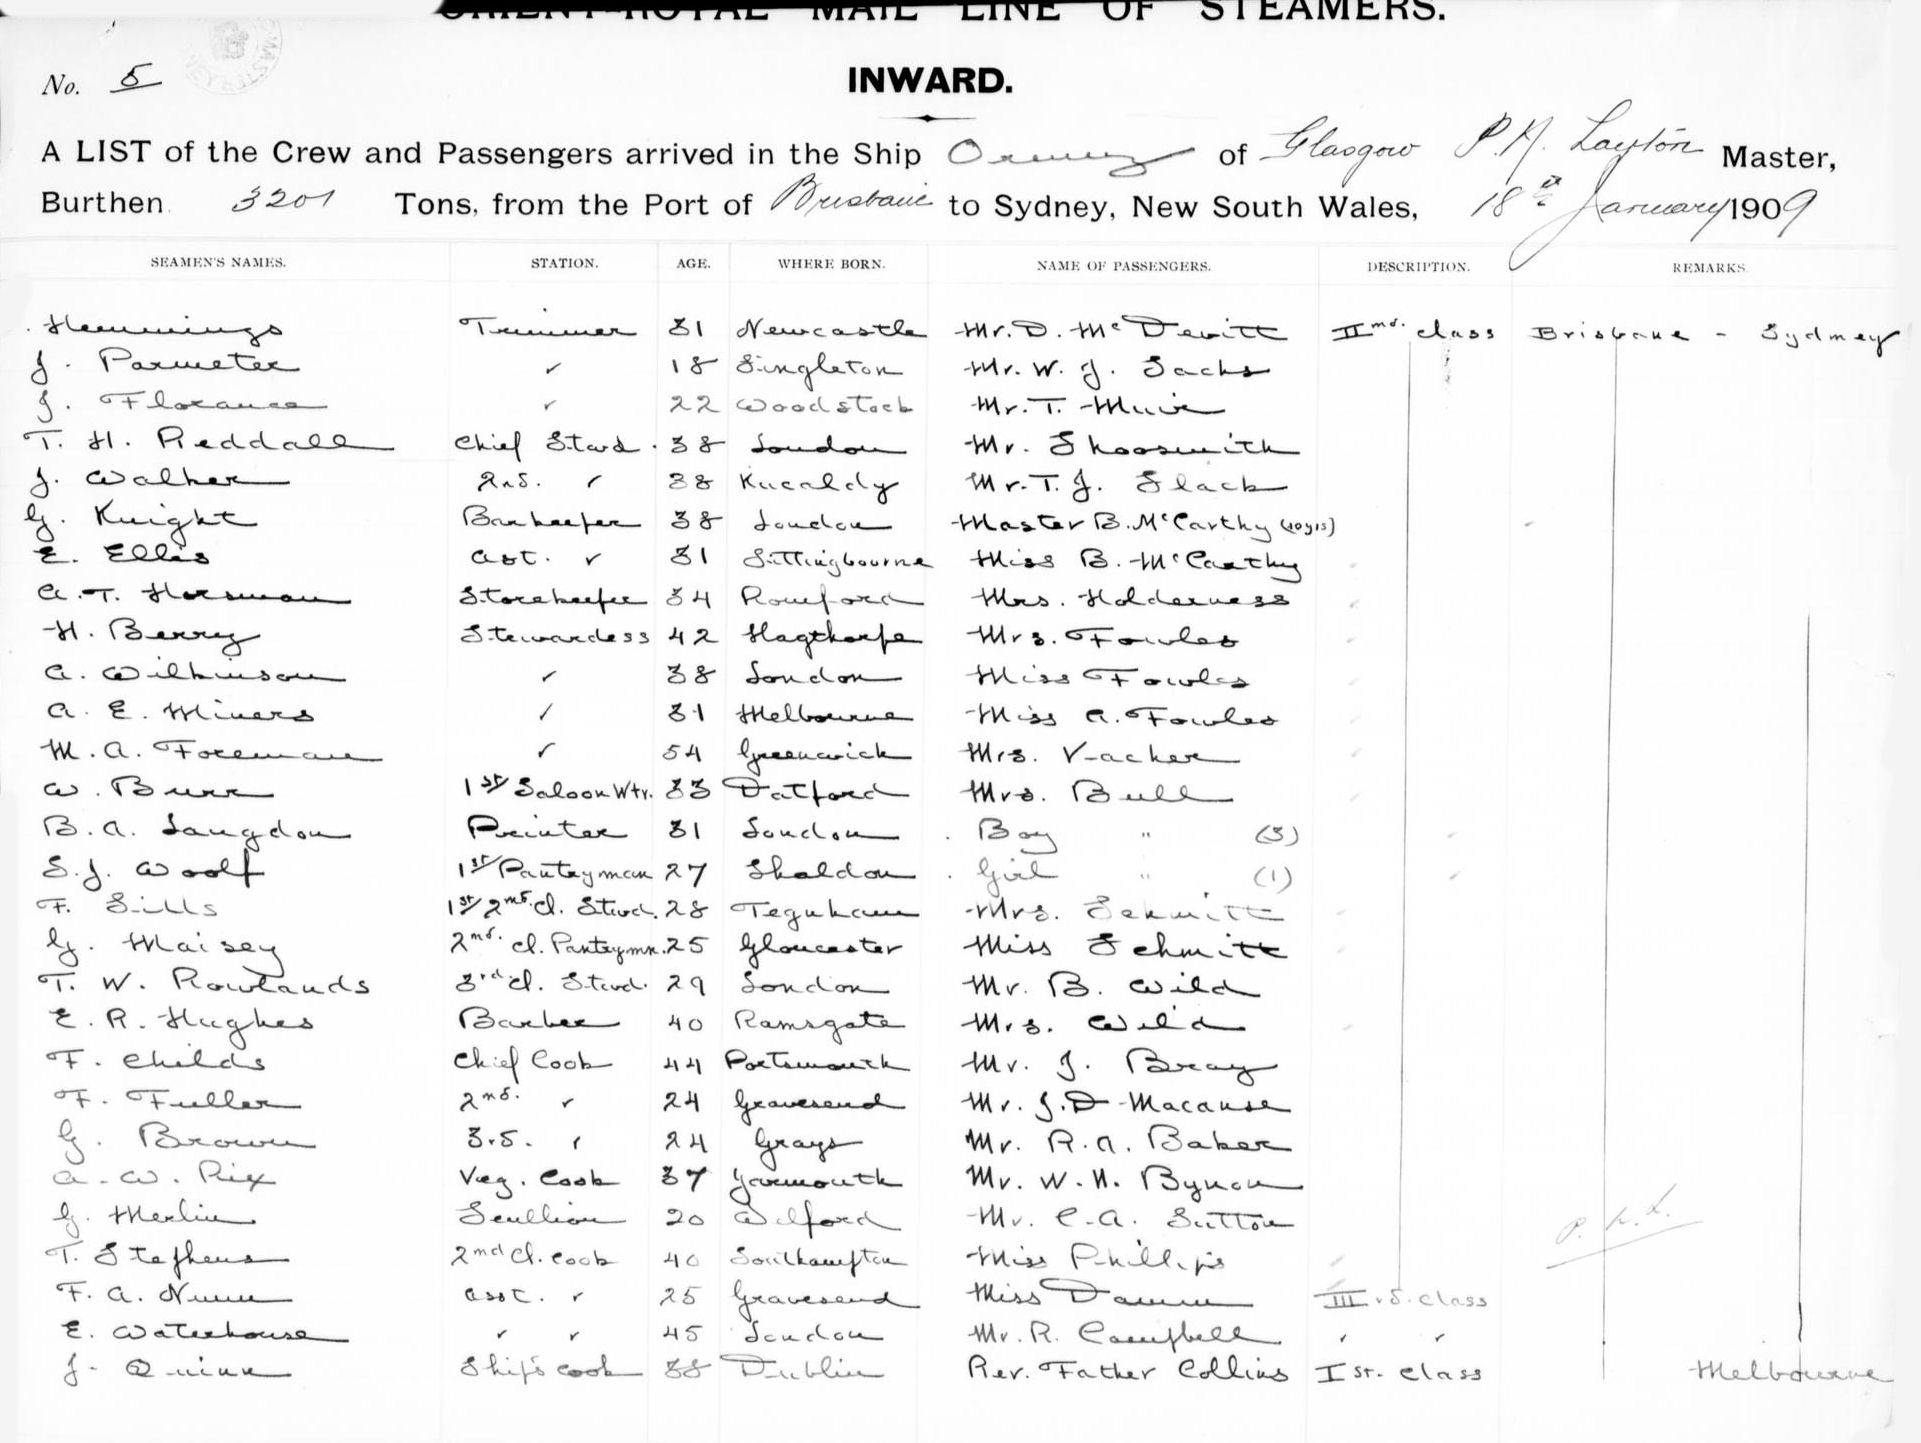 ORIENT-ROYAL MAIL LINE OF STEAMERS.
No. 5
INWARD.
A LIST of the Crew and Passengers arrived in the Ship of Glasgow P. N. Layton Master,
Burthen 3201 Tons, from the Port of Brisbane to Sydney, New South Wales, 18th January 1909
SEAMEN'S NAMES. STATION. AGE. WHERE BORN. NAME OF PASSENGERS. DESCRIPTION. REMARKS.
Hemmings Trimmer 31 Newcastle Mr. D. McDevitt IInd. class Brisbane - Sydney
J. Parmeter " 18 Singleton Mr. W. J. Sachs
J. Florance " 22 Woodstock Mr. T. Muir
T. H. Reddall Chief Stwd. 38 London Mr. Shoosmith
J. Walker 2nd. " 38 Mr. T. J. Slack
G. Knight Barkeeper 38 London Master B. McCarthy (10yrs)
E. Ellis Asst. " 31 Sittingbourne Miss B. McCarthy
A. T. Horsman Storekeeper 34 Romford Mrs. Holderness
H. Berry Stewardess 42 Hagthorpe Mrs. Fowles
A. Wilkinson " 38 London Miss Fowles
A. E. Miners " 31 Melbourne Miss A. Fowles
M. A. Foreman " 54 Greenwich Mrs. Vacher
W. Burr 1st Saloon Wtr. 33 Datford Mrs. Bull
B. A. Langdon Printer 31 London Boy " (3)
S. J. Woolf 1st Pantryman 27 Sheldon Girl " (1)
F. Sills 1st 2nd. Cl. Stwd. 28 Mrs. Schmitt
G. Maisey 2nd. Cl. Pantrymn. 25 Gloucester Miss Schmitt
T. W. Rowlands 3rd Cl. Stwd. 29 London Mr. B. Wild
E. R. Hughes Barber 40 Ramsgate Mrs. Wild
F. Childs Chief Cook 44 Portsmouth Mr. J. Bray
F. Fuller 2nd. " 24 Gravesend Mr. J. D. Macansh
G. Brown 3rd. " 24 Grays Mr. R. A. Baker
A. W. Rix Veg. Cook 37 Yarmouth Mr. W. H. Bynon
G. Merlin Scullion 20 Wilford Mr. C. A. Sutton
T. Stephens 2nd Cl. Cook 40 Southampton Miss Phillips
F. A. Nunn Asst. " 25 Gravesend Miss Dawn IIIrd. Class
E. Waterhouse " " 45 London Mr. R. Campbell " "
J. Quinn Ship's Cook 38 Dublin Rev. Father Collins Ist. Class Melbourne